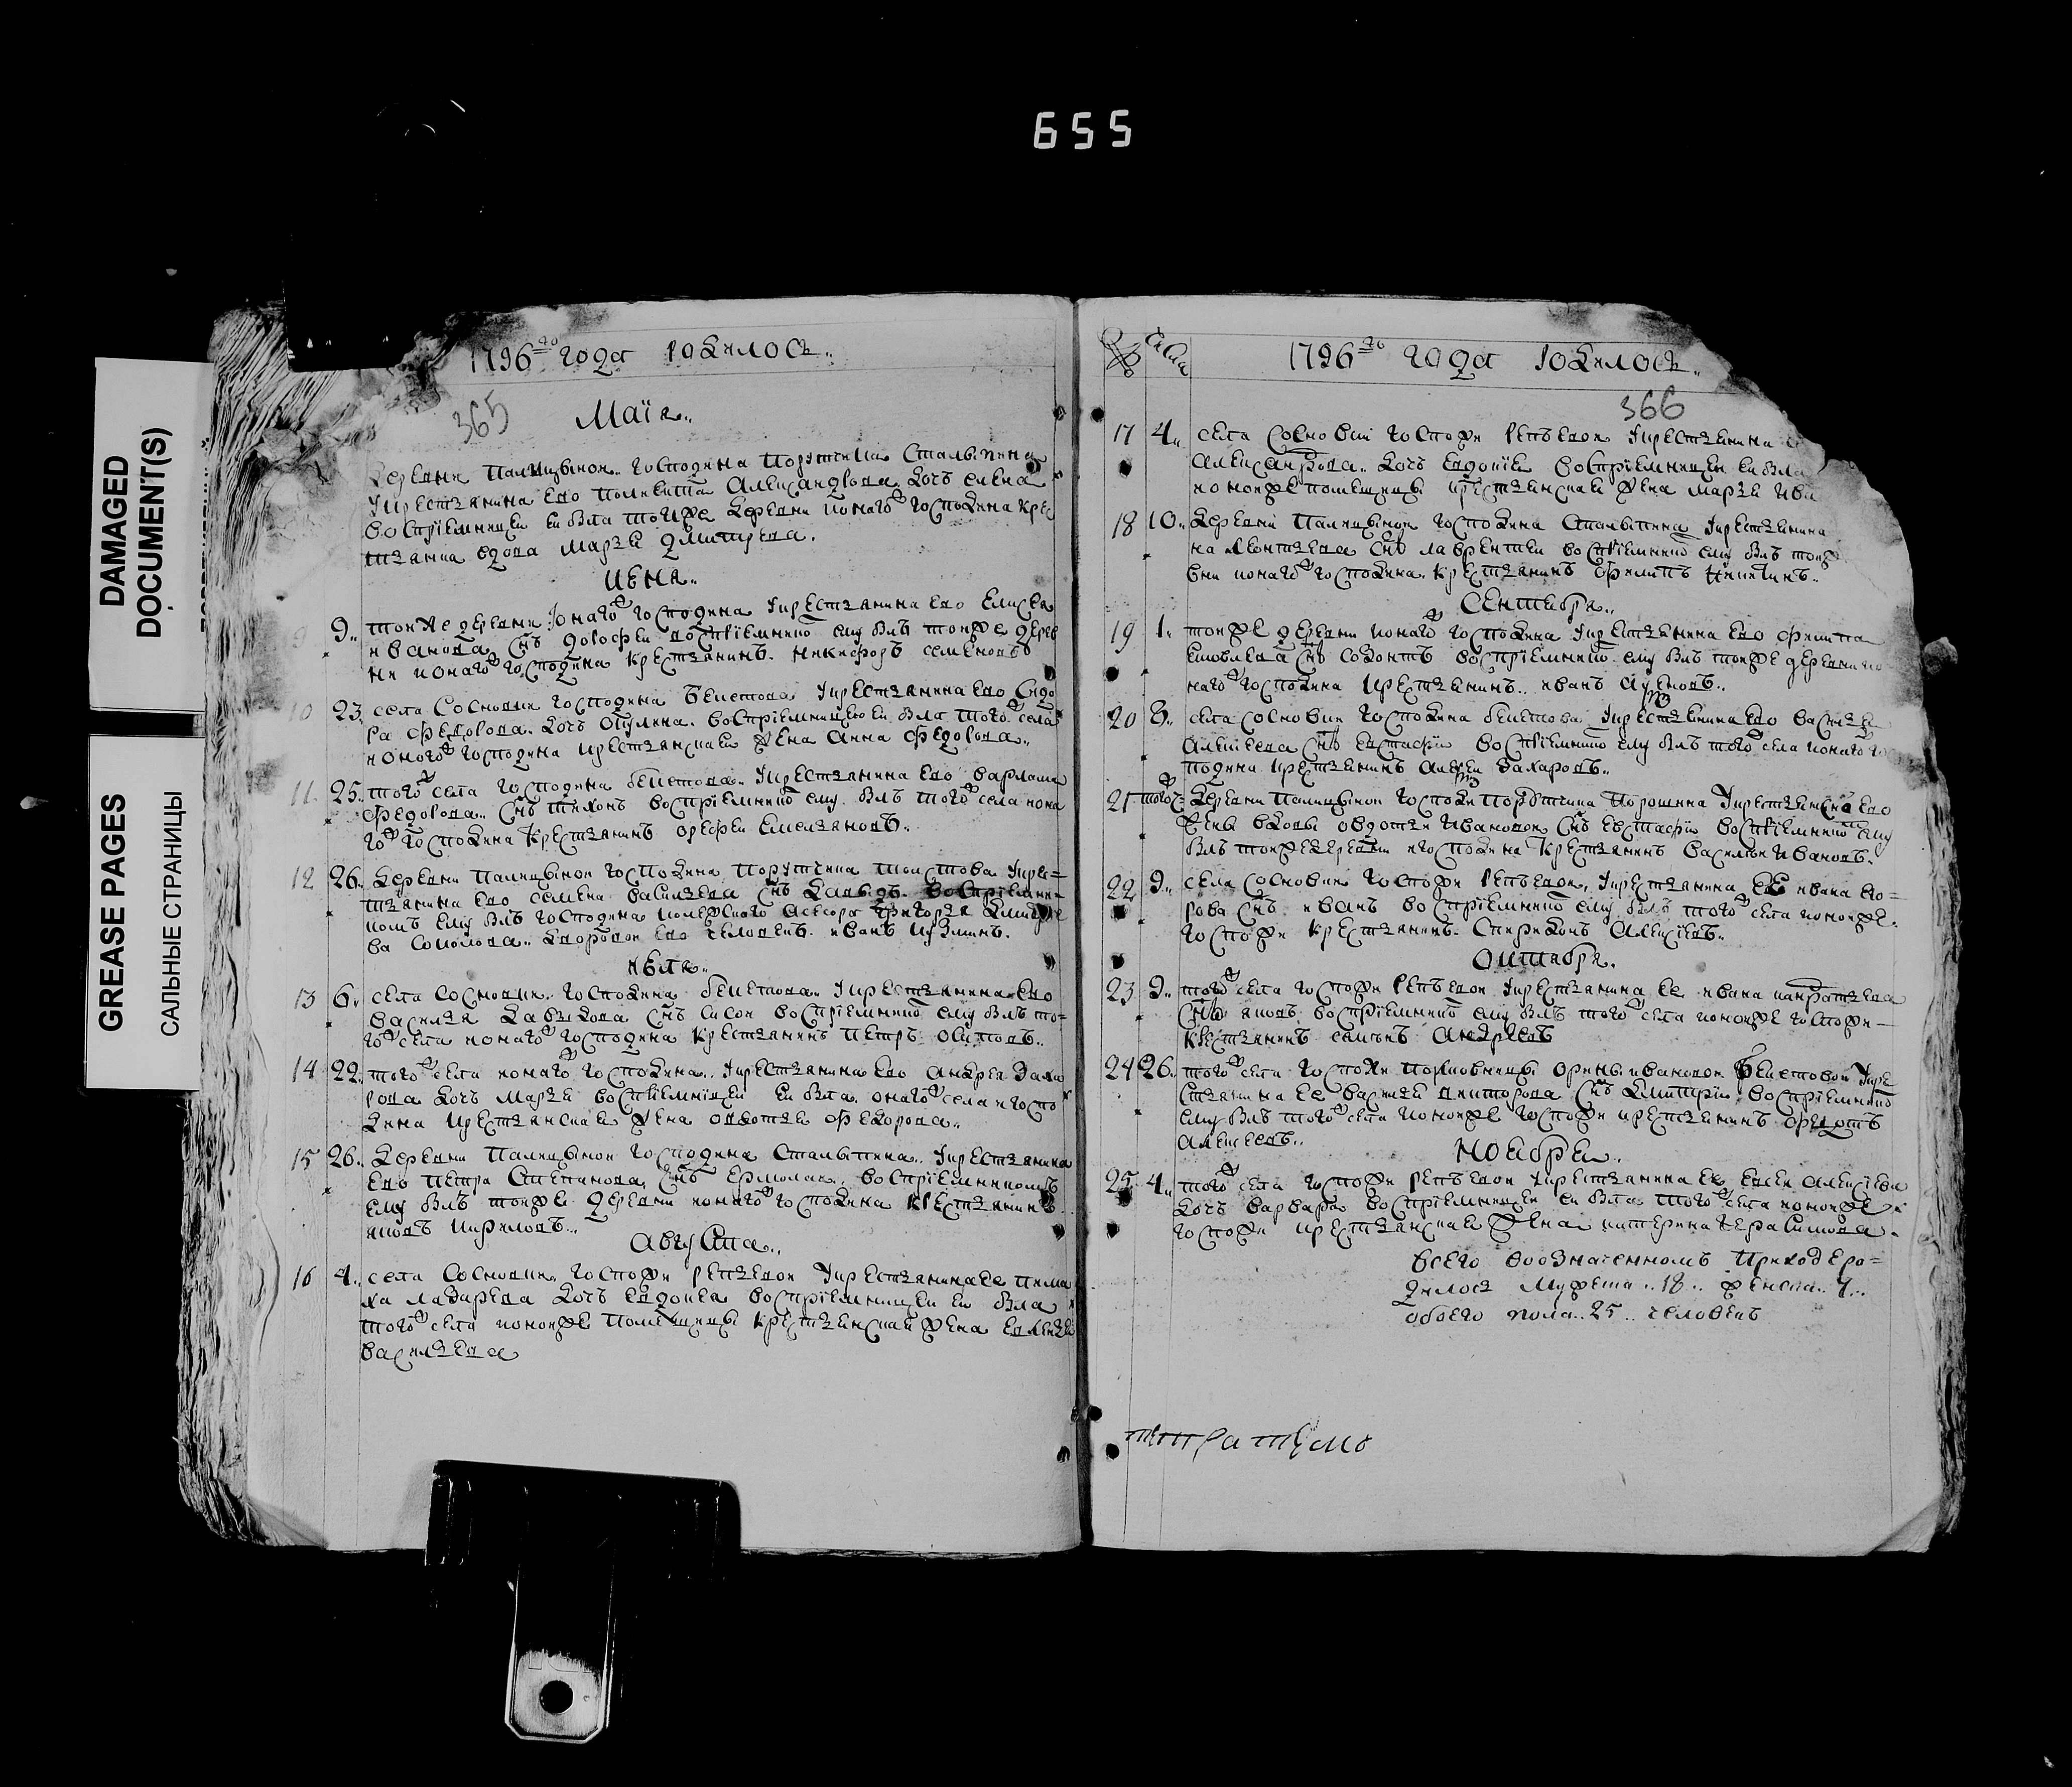 655
DAMAGED
DOCUMENT(S)
GREASE PAGES
САЛЬНЫЕ СТРАНИЦЫ
1796го года родилось
365
Маїя
Деревни Палицыной господина Порутчика Сталыпина
крестьянина ево Поликита Александрова дочь елена
воспрїемницей ей была тойже деревни и онаго господина крес
тьянка вдова Марья дмитрева
июня
9 тойже деревни и онаго господина крестьянина ево Елисея
иванова снъ дорофей воспрїемнико ему былъ тойже дерев
ни и онаго господина крестьянинъ никифоръ семеновъ
10 23 села Сосновки господина Бекетова крестьянина ево Сидо
ра федорова дочь окулина воспрїемницею ей была того села
и оного господина крестьянская жена Анна федорова
11 25 того села господина бекетова крестьянина ево варлама
федорова снъ тихонъ воспрїемнико ему былъ того села и она
го господина крестьянинъ орефей емельяновъ
12 26 деревни Палицыной господина Порутчика толстова крес
тьянина ево семена васильева снъ давыдъ воспрїемни
комъ ему былъ господина колежского асесора григорья дмитрие
ва соколова дворовой ево человекъ иванъ кузминъ
июля
13 6 села сосновки господина бекетова крестьянина ево
василья давыдова снъ сисой воспрїемнико ему былъ то
го села и онаго господина крестьянинъ петръ осиповъ
14 22 того села и онаго господина крестьянина ево андрея заха
рова дочь марья воспрїемницей ей была онаго села и госпо
дина крестьянская жена овдотья федорова
15 26 деревни Палицыной господина Сталыпина крестьянина
ево петра степанова снъ ермолай воспрїемникомъ
ему былъ тойже деревни и онаго господина крестьянинъ
яковъ кириловъ
августа
16 4 села сосновки госпожи репьевой крестьянина ее пима
на лазарева дочь евдокея воспрїемницей ей была
того села и онойже помещицы крестьянская жена
васильева
1796го года родилось
366
17 4 села сосновки госпожи репьевой крестьянина
александрова дочь евдокия воспрїемницей ей была
и онойже помещицы крестьянская жена марья ива
18 10 деревни Палицыной господина сталыпина крестьянина
на леонтьева снъ лаврентей воспрїемнико ему былъ тойж
вни и онаго господина крестьянинъ филипъ никитинъ
сентября
19 1 тойже деревни и онаго господина крестьянина ево филипа
яковлева снъ созонтъ воспрїемнико ему былъ тойже деревни и о
наго господина крестьянинъ иванъ
20 8 села сосновки господина бекетова крестьянина ево василья
алексеева снъ евстафїи воспрїемнико ему былъ того села и онаго го
подина крестьянинъ андрей захаровъ
21 тогож деревни Палицыной господи порутчика порошина крестьянской ево
жены вдовы овдотьи ивановой снъ евстафїи воспрїемнико ему
былъ тойже деревни и господина крестьянинъ василей ивановъ
22 9 села сосновки госпожи репьевой крестьянина ее ивана его
рова снъ иванъ воспрїемнико ему былъ того села и онойже
госпожи крестьянинъ спиридонъ алексеевъ
октября
23 9 того села госпожи репьевой крестьянина ее ивана панфатьева
снъ яковъ воспрїемнико ему былъ того села и онойже госпожи
крестьянинъ самсонъ андреевъ
24 26 того села госпожи полковницы орины ивановой бекетовой кре
стьянина ее василья викторова снъ димитрїи воспрїемнико
ему былъ того села и онойже госпожи крестьянинъ федотъ
алексеевъ
ноября
25 4 того села госпожи репьевой крестьянина ее евсея алексеева
дочь варвара воспрїемницей ей была того села и онойже
госпожи крестьянская жена катерина герасимова
всего вообзначенномъ приходе ро
дилось мужеска 18 женска 7
обоего пола 25 человекъ